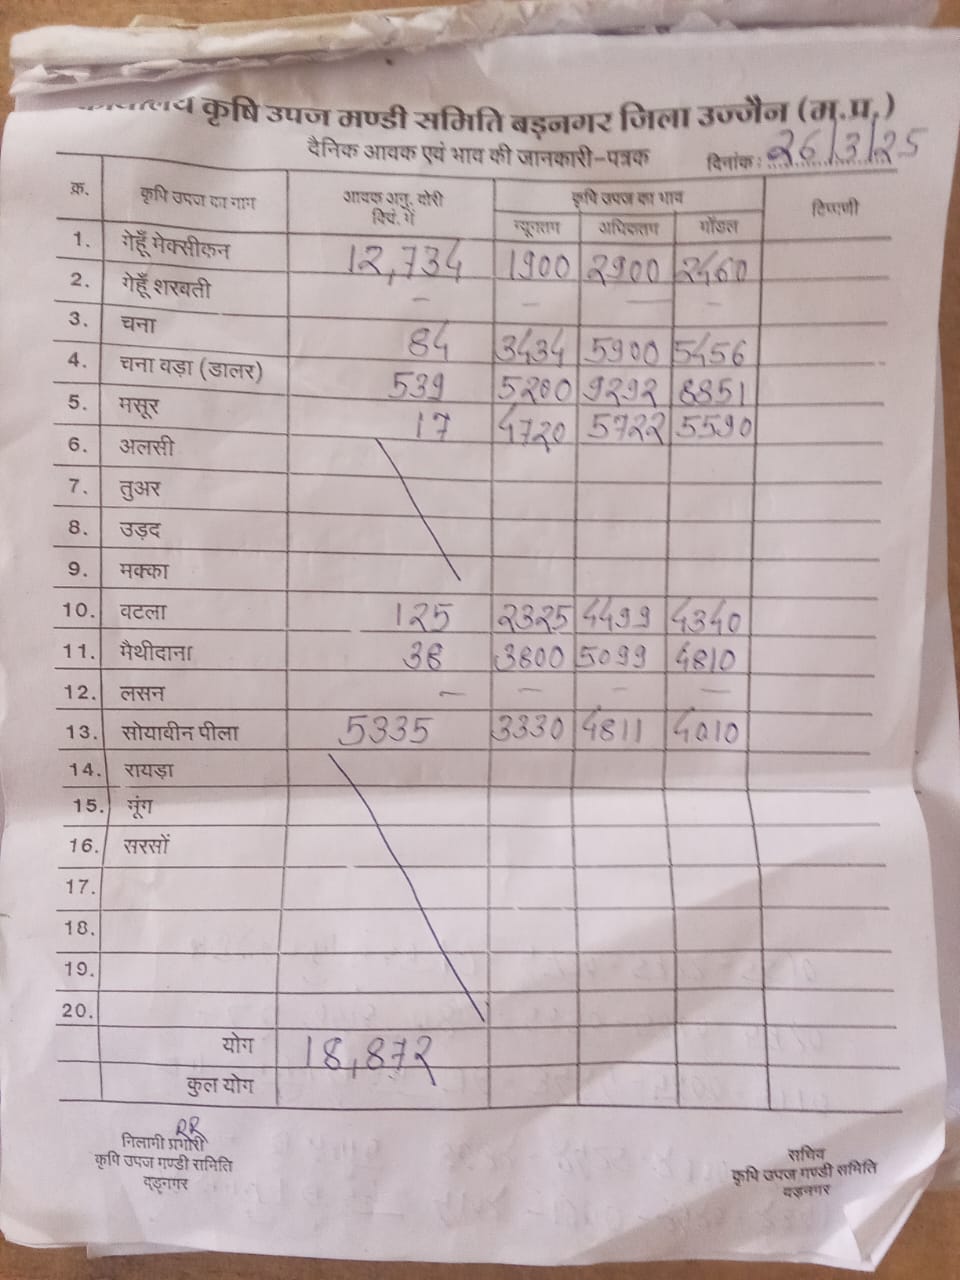 कार्यालय कृषि उपज मण्डी समिति बड़नगर जिला उज्जैन (म.प्र.)
दैनिक आवक एवं भाव की जानकारी-पत्रक दिनांक: 26/3/25
क्र. कृषि उपज का नाम आवक अनु. बोरी क्विं. में कृषि उपज का भाव टिप्पणी
न्यूनतम अधिकतम मॉडल
1. गेहूँ मेक्सीकन 12,734 1900 2900 2460
2. गेहूँ शरबती – – – –
3. चना 84 3434 5900 5456
4. चना बड़ा (डालर) 539 5200 9292 8851
5. मसूर 17 4720 5722 5590
6. अलसी
7. तुअर
8. उड़द
9. मक्का
10. वटला 125 2325 4499 4340
11. मैथीदाना 38 3800 5099 4810
12. लसन – – – –
13. सोयाबीन पीला 5335 3330 4811 4010
14. रायड़ा
15. मूंग
16. सरसों
17.
18.
19.
20.
योग 18,872
कुल योग
निलामी प्रभारी
कृषि उपज मण्डी समिति
बड़नगर
सचिव
कृषि उपज मण्डी समिति
बड़नगर